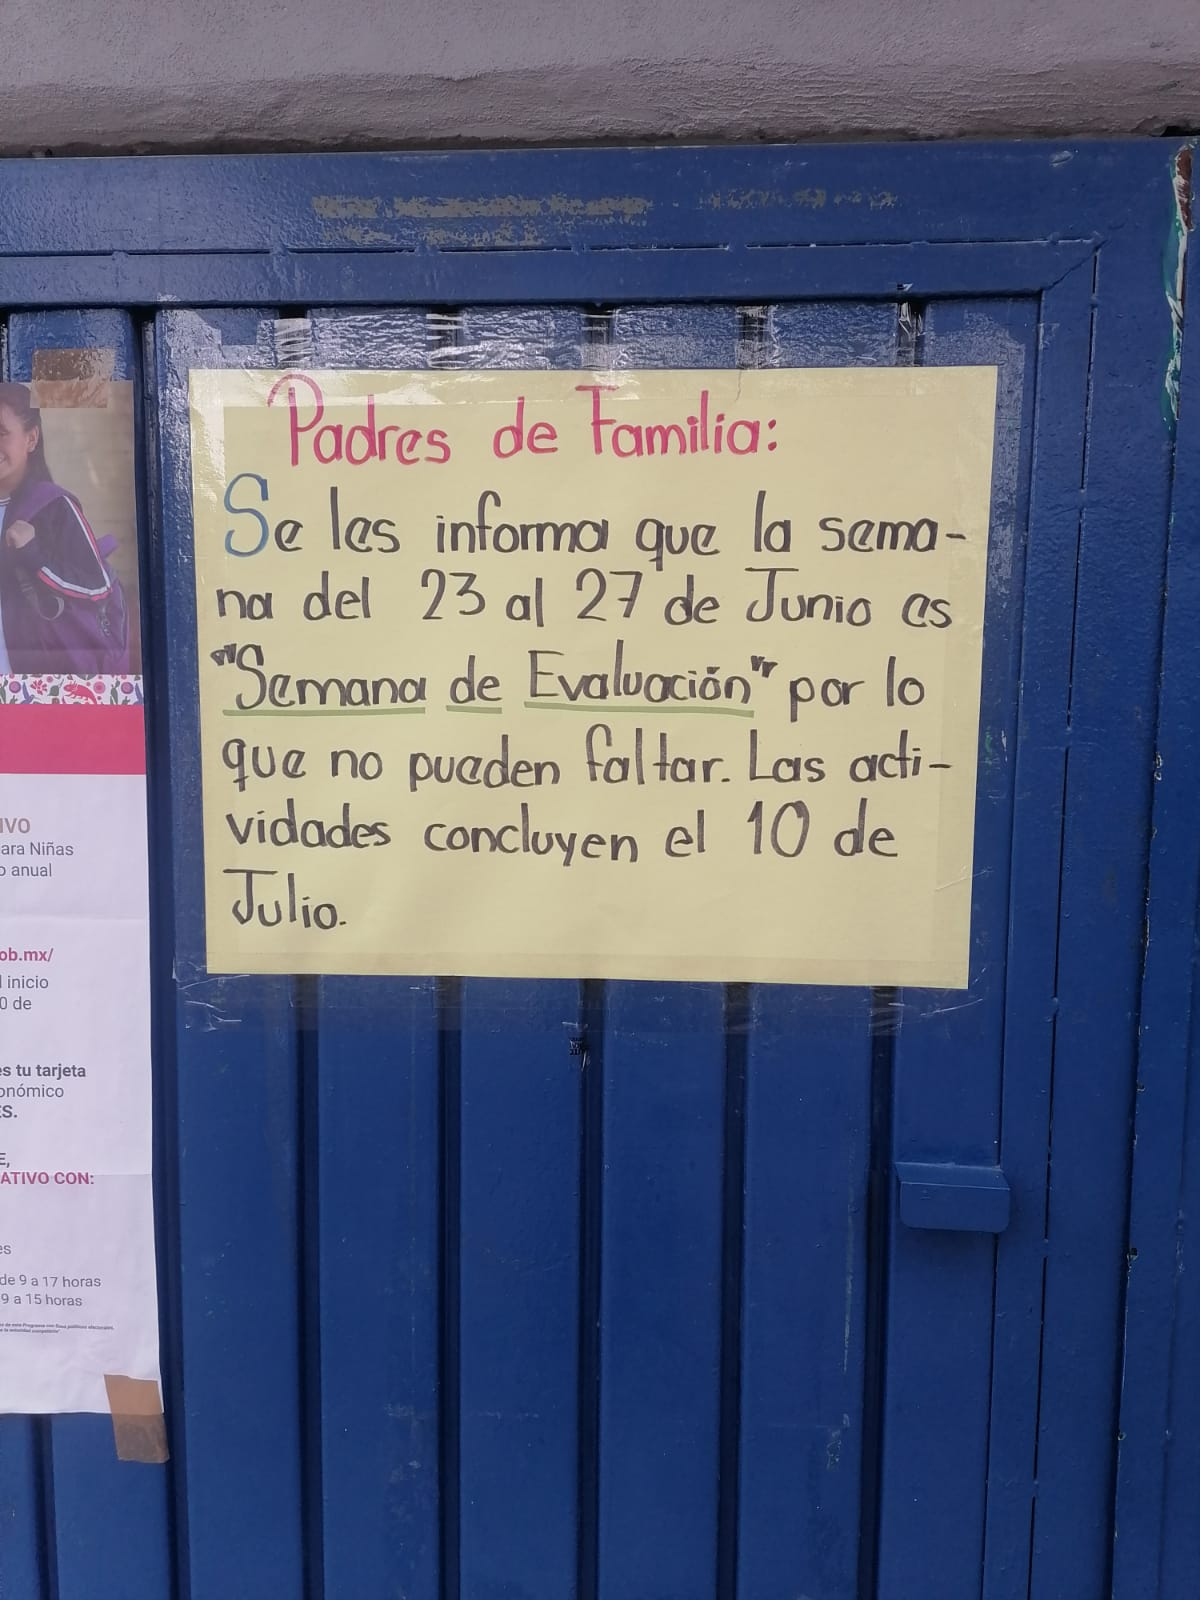 Padres de Familia:
Se les informa que la sema-
na del 23 al 27 de Junio es
"Semana de Evaluación" por lo
que no pueden faltar. Las acti-
vidades concluyen el 10 de
Julio.
IVO
ara Niñas
o anual
ob.mx/
l inicio
0 de
es tu tarjeta
onómico
ES.
E,
ATIVO CON:
es
de 9 a 17 horas
9 a 15 horas